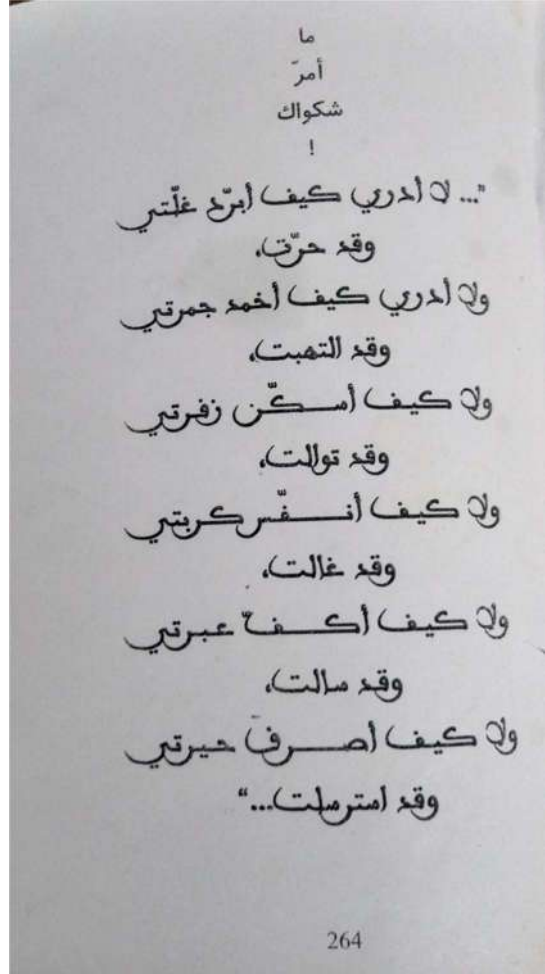 ما
أمرّ
شكواك
!
"... لا أدري كيف أبرّد غلّتي
وقد حرّت،
ولا أدري كيف أخمد جمرتي
وقد التهبت،
ولا كيف أسكّن زفرتي
وقد توالت،
ولا كيف أنفّس كربتي
وقد غالت،
ولا كيف أكفّ عبرتي
وقد سالت،
ولا كيف أصرفَ حيرتي
وقد استرسلت..."
264